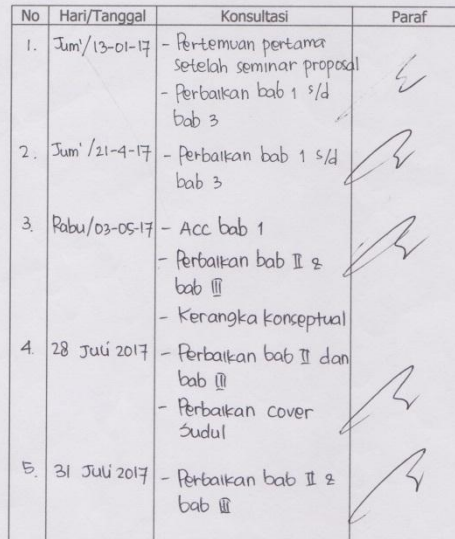 No Hari/Tanggal Konsultasi Paraf
1. Jum'/13-01-17 - Pertemuan pertama
setelah seminar proposal
- Perbaikan bab 1 s/d
bab 3
2. Jum'/21-4-17 - Perbaikan bab 1 s/d
bab 3
3. Rabu/03-05-17 - Acc bab 1
- Perbaikan bab II &
bab III
- Kerangka konseptual
4. 28 Juli 2017 - Perbaikan bab II dan
bab III
- Perbaikan cover
Judul
5. 31 Juli 2017 - Perbaikan bab II &
bab III